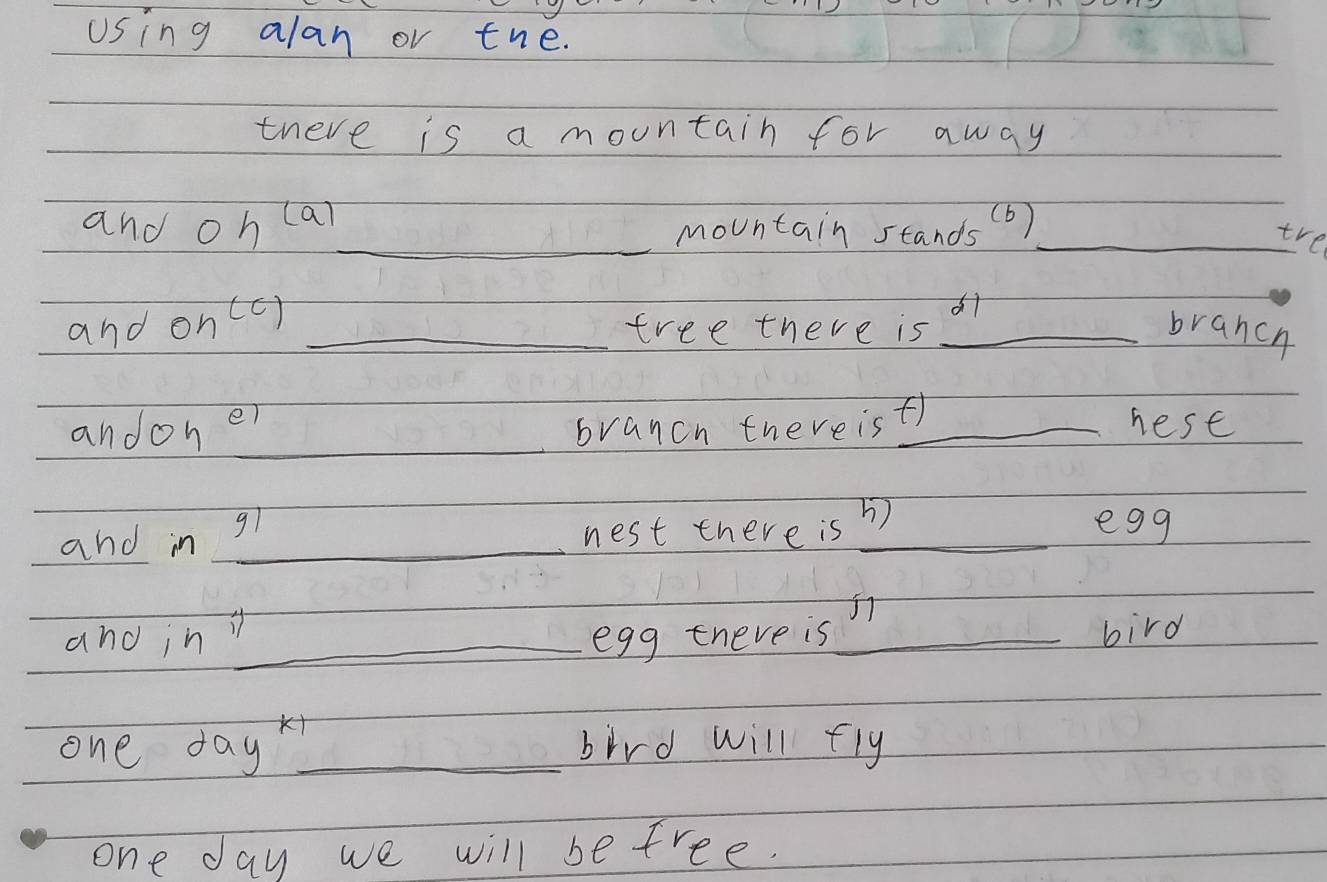 using a/an or the.
there is a mountain for away
and on (a) ________ mountain stands (b) ________ tre
and on (c) ________ tree there is d) ________ branch
and on e) ________ branch there is f) ________ nest
and in g) ________ nest there is h) ________ egg
and in i) ________ egg there is j) ________ bird
one day k) ________ bird will fly
one day we will be free.